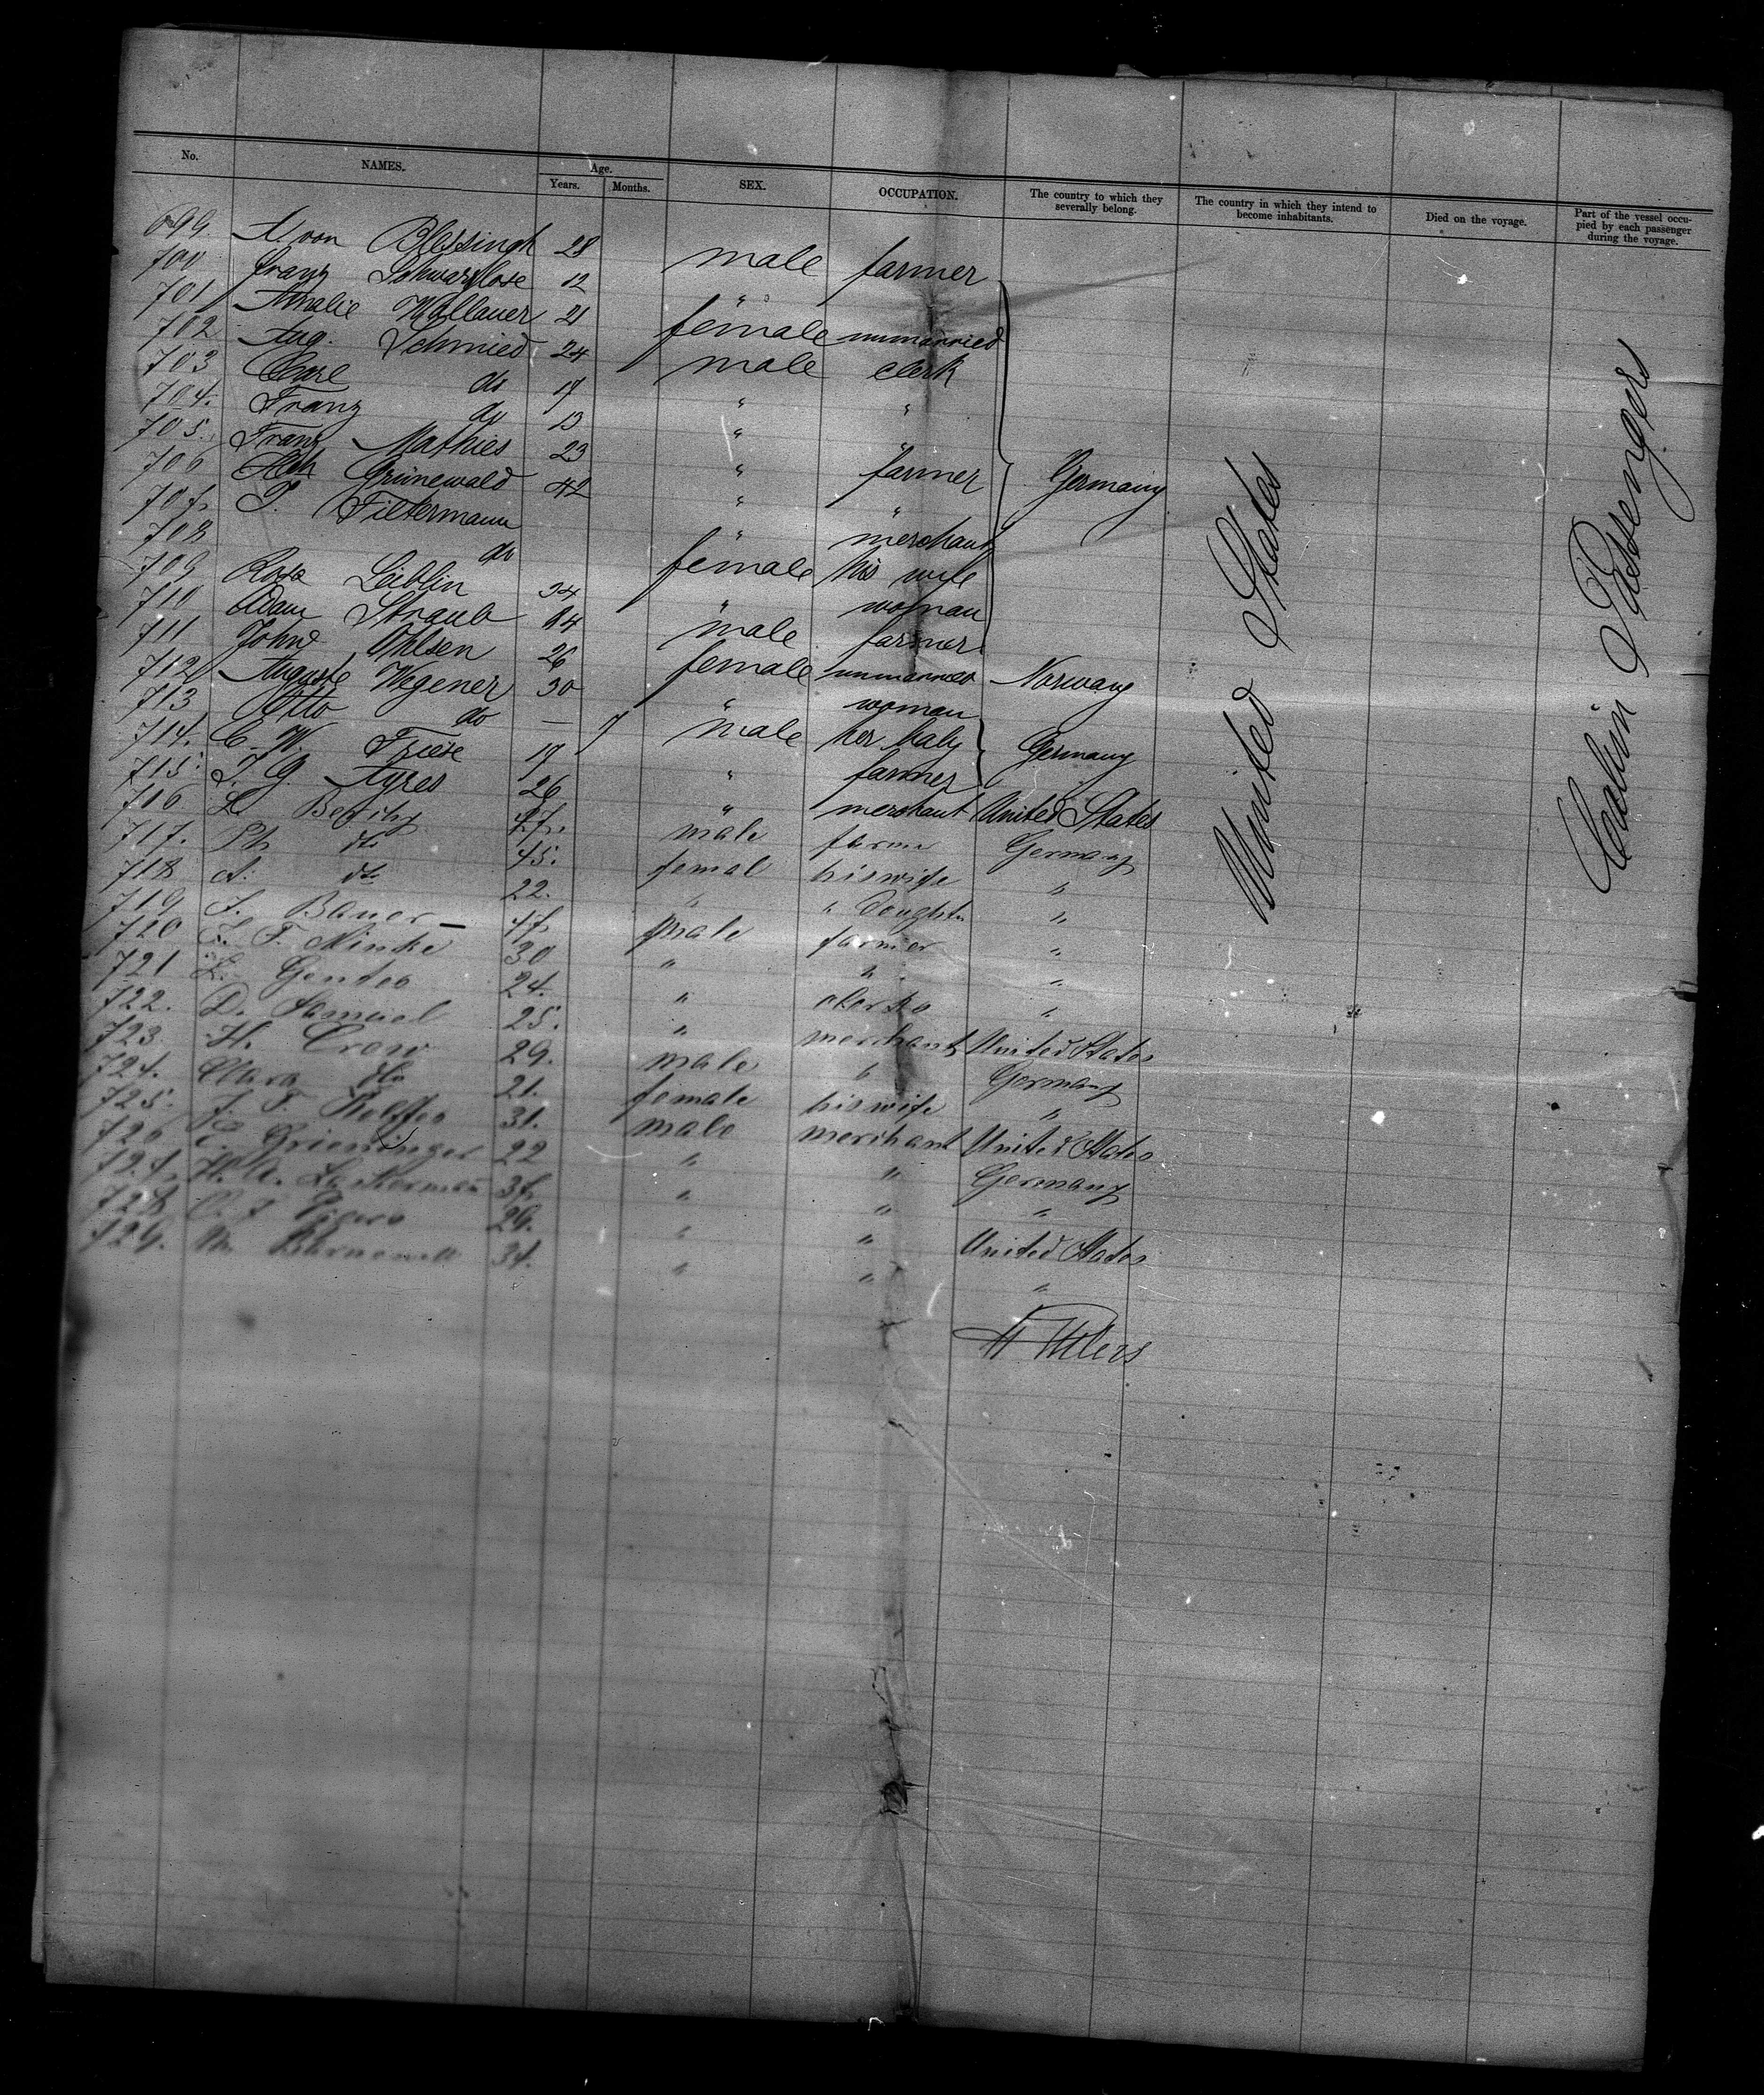 No. NAMES. Age. Years. Months. SEX. OCCUPATION. The country to which they severally belong. The country in which they intend to become inhabitants. Died on the voyage. Part of the vessel occupied by each passenger during the voyage.
699. von Blessingh 28 male farmer
700 Franz Schwarzlose 12 "
701 Amalie Wallauer 21 female unmarried
702 Aug. Schmied 24 male clerk
703 Carl do 17 " "
704. Franz do 13 " "
705. Franz Mathies 23 " farmer Germany
706 Grünewald 42 " "
707. Tietermann " merchant
708 do female his wife
709 Rosa Lieblin 34 " woman
710 Adam Straub 14 male farmer
711 Ohlsen 26 female unmarried Norway
712 Auguste Wegener 30 " woman
713 Otto do — 7 male her baby Germany
714. C. W. Friese 17 " farmer
715. Ayres 26 " merchant United States
716. 47. male farmer Germany
717. Ph do 45. female his wife "
718 A. do 22. " " doughter "
719 Bauer — 47 male farmer "
720 F. Minke 30 " " "
721 Gentes 24. " clerk "
722. D. Samuel 25. " merchant United States
723. H. Crow 29. male " Germany
724. Clara do 21. female his wife "
725. 31. male merchant United States
726 Grieninger 22 " " Germany
727. 37 " " "
728 29. " " United States
729. 34. " " "
United States
Cabin Passengers